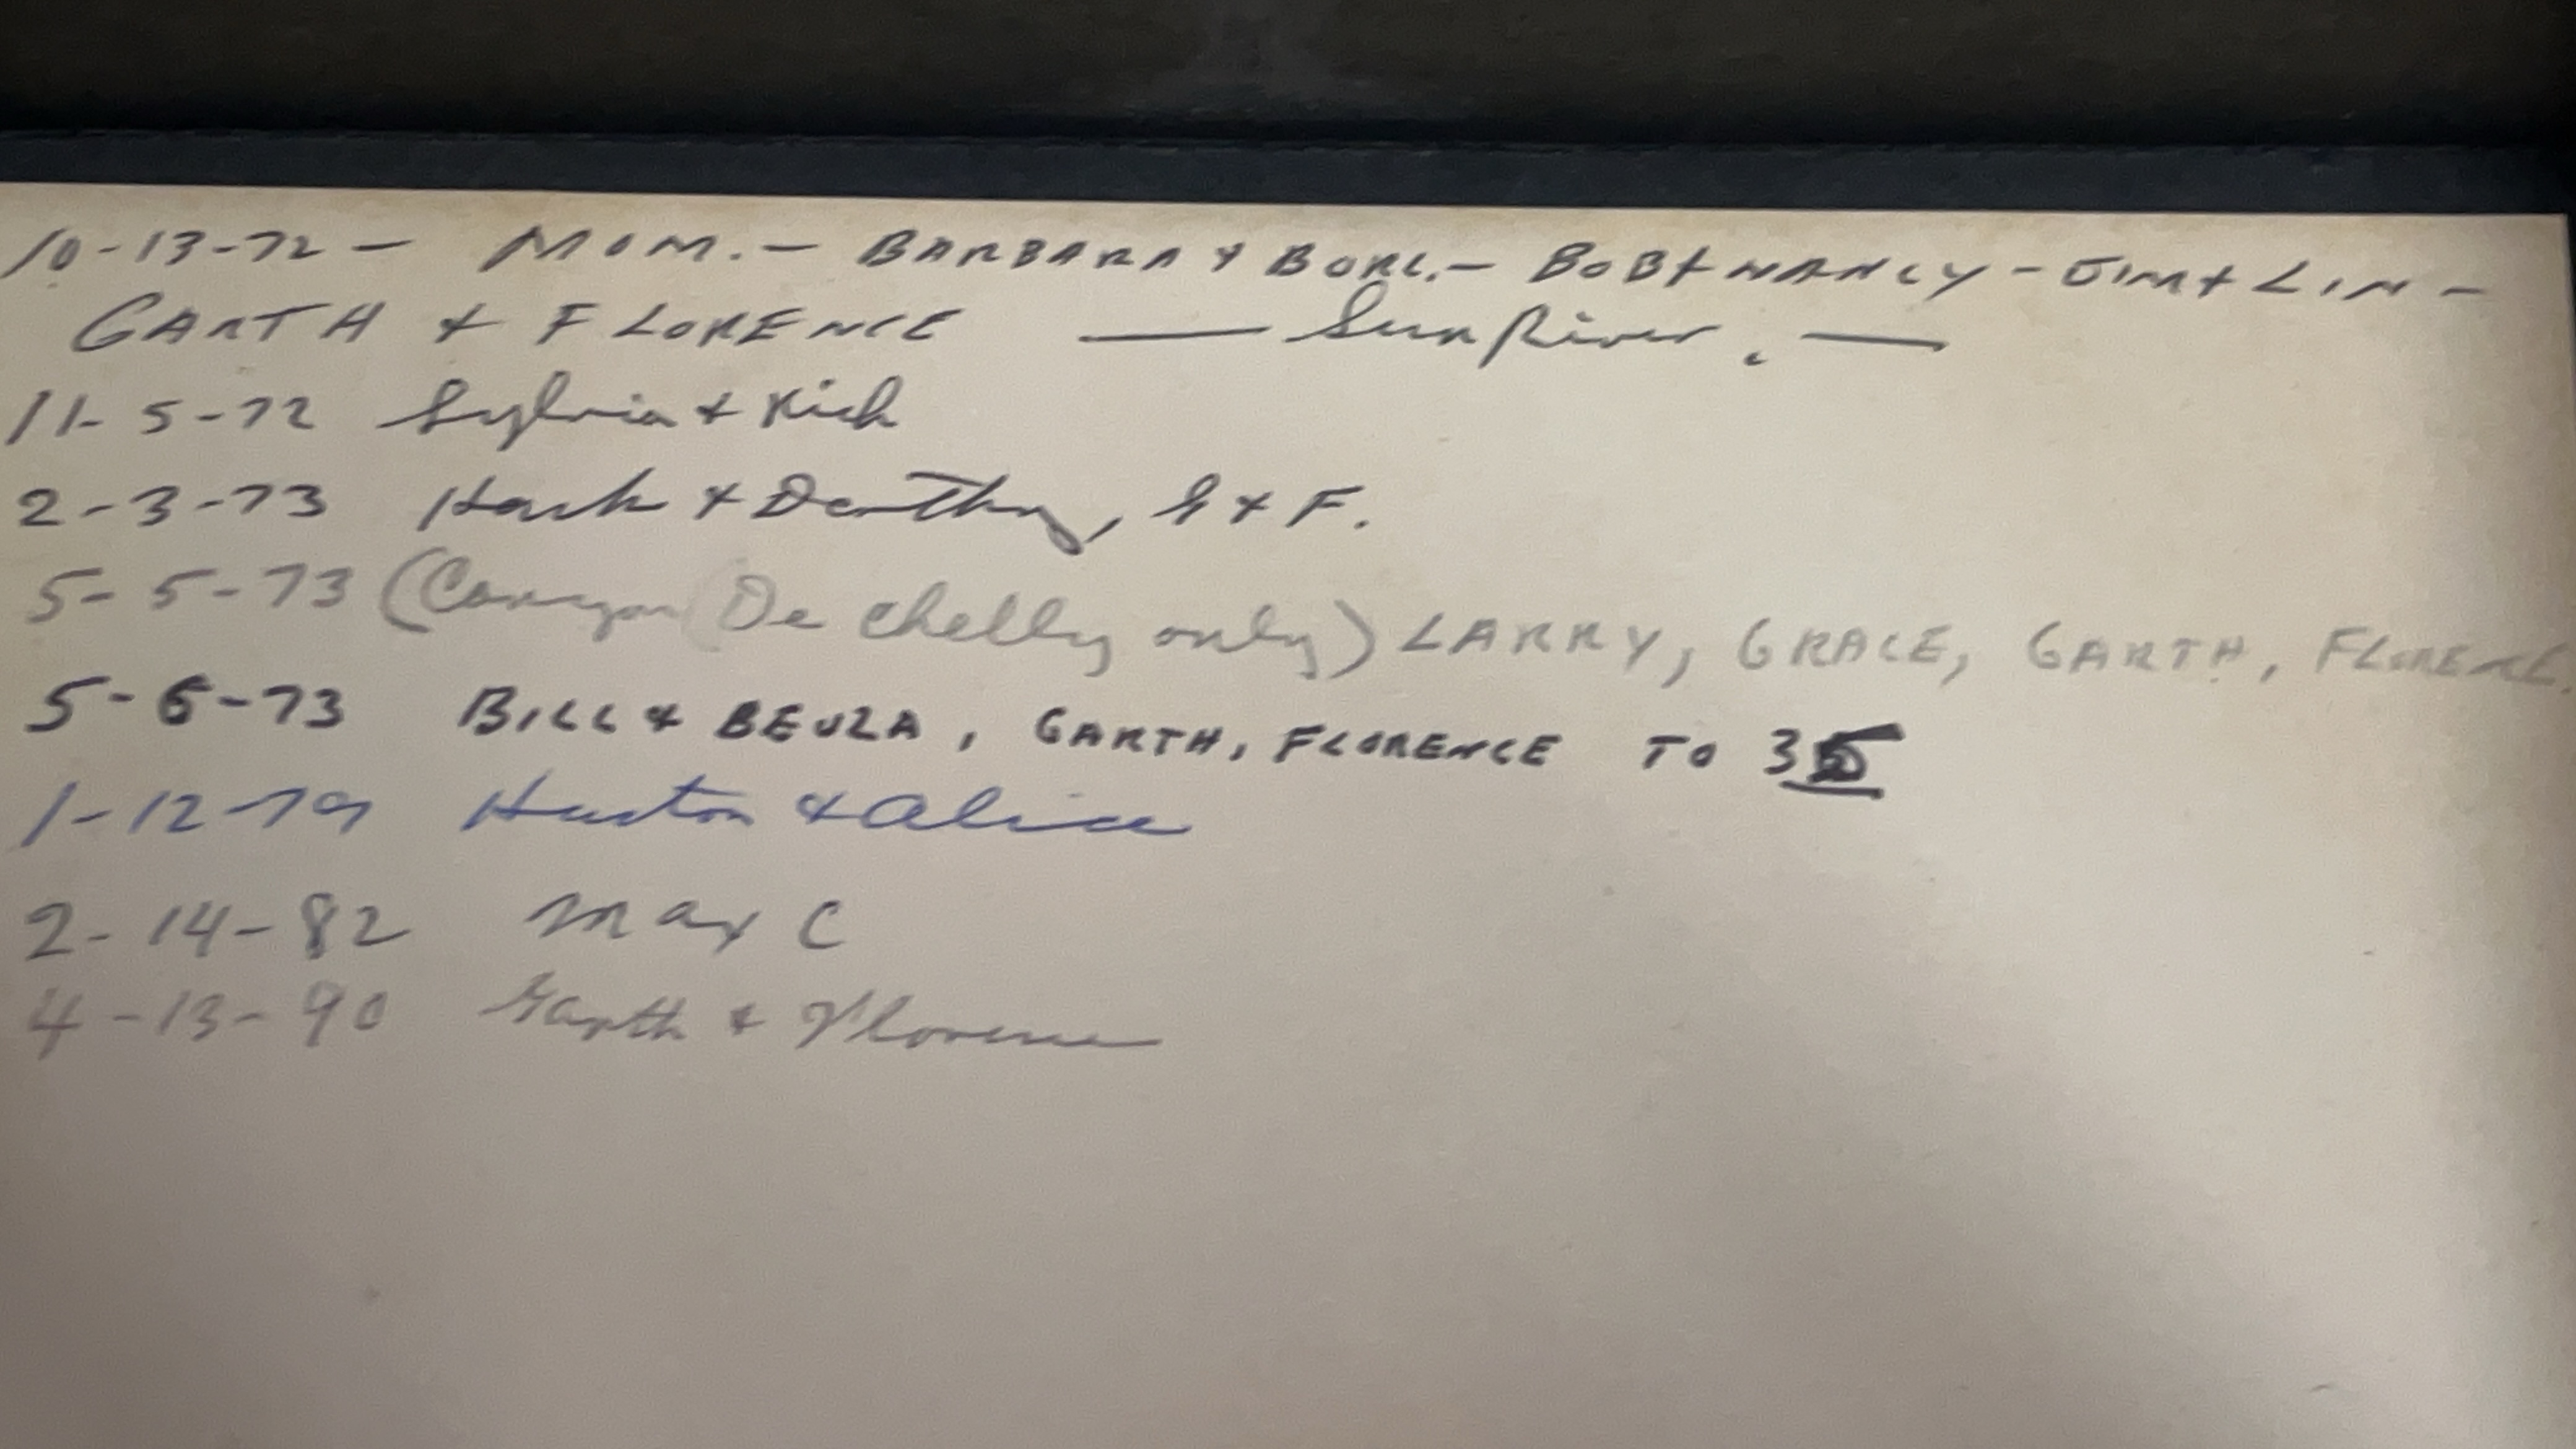 10-13-72 — MOM. — BARBARA & — BOB & NANCY - JIM + LIN -
GARTH & FLORENCE — Sun River. —
11-5-72 Sylvia + Rich
2-3-73 & Dorothy, G & F.
5-5-73 (Canyon De Chelly only) LARRY, GRACE, GARTH, FLORENCE.
5-6-73 BILL & , GARTH, FLORENCE TO
1-12-79 Huston & Alice
2-14-82 Max C
4-13-90 Garth & Florence